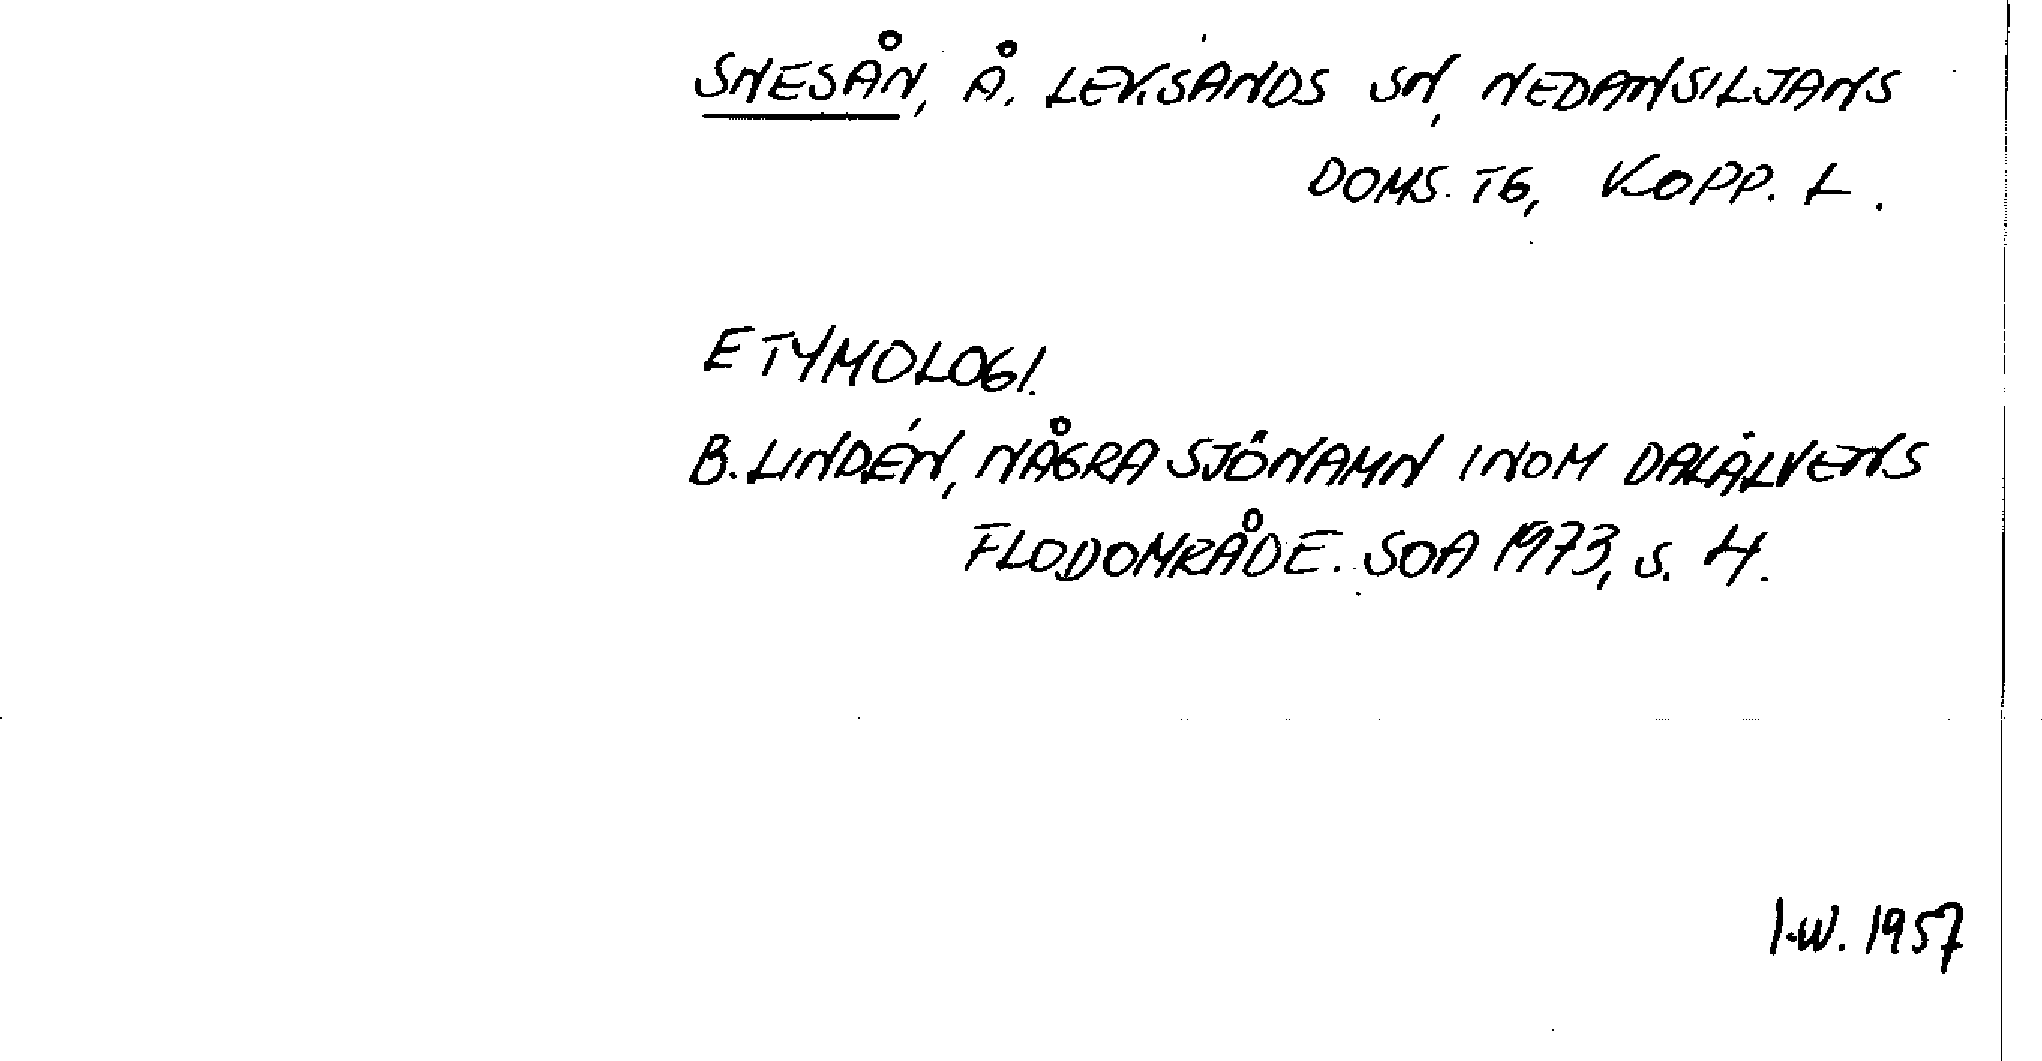 SNESÅN, Å. LEKSANDS SN, NEDANSILJANS
DOMS. TG, KOPP. L.
ETYMOLOGI.
B. LINDÉN, NÅGRA SJÖNAMN INOM DALÄLVENS
FLODOMRÅDE. SOA 1973, S. 4.
I.W. 1957